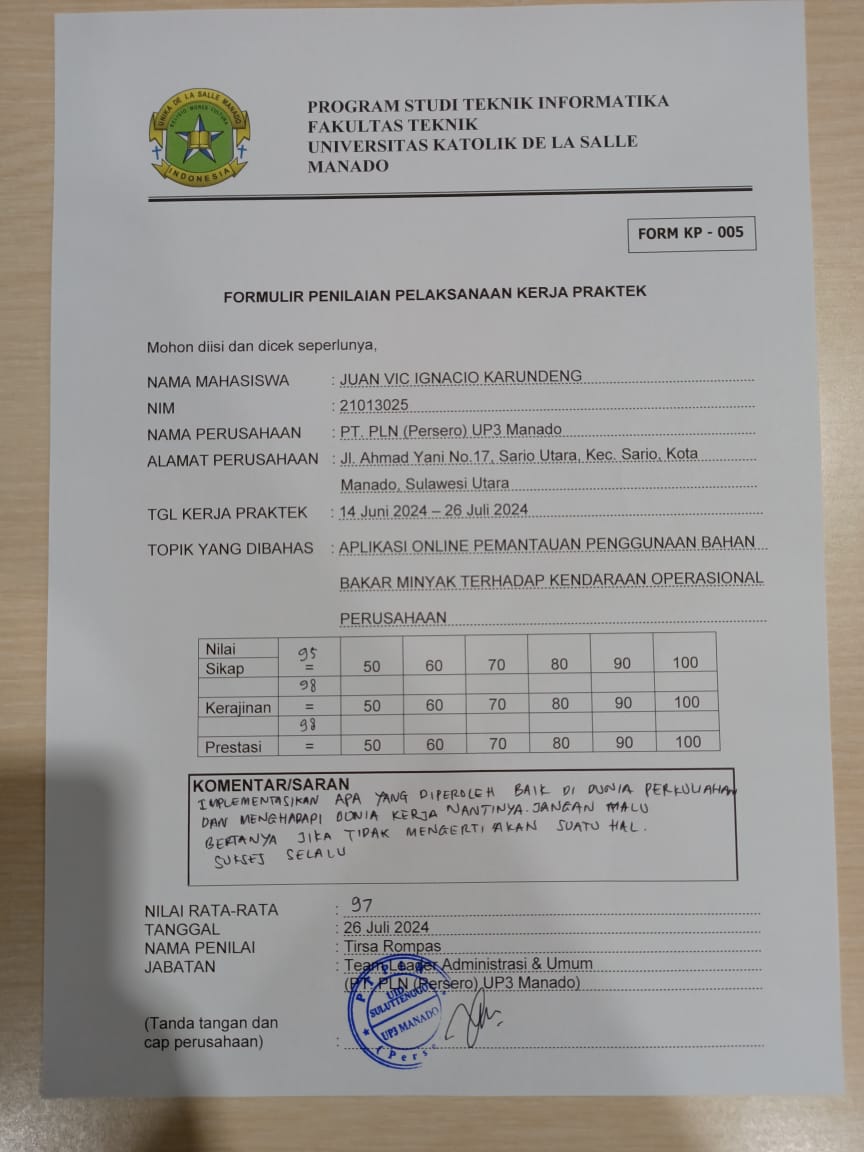 UNIKA DE LA SALLE MANADO
RELIGIO MORES CULTURA
INDONESIA
PROGRAM STUDI TEKNIK INFORMATIKA
FAKULTAS TEKNIK
UNIVERSITAS KATOLIK DE LA SALLE
MANADO
FORM KP - 005
FORMULIR PENILAIAN PELAKSANAAN KERJA PRAKTEK
Mohon diisi dan dicek seperlunya,
NAMA MAHASISWA : JUAN VIC IGNACIO KARUNDENG
NIM : 21013025
NAMA PERUSAHAAN : PT. PLN (Persero) UP3 Manado
ALAMAT PERUSAHAAN : Jl. Ahmad Yani No.17, Sario Utara, Kec. Sario, Kota
Manado, Sulawesi Utara
TGL KERJA PRAKTEK : 14 Juni 2024 – 26 Juli 2024
TOPIK YANG DIBAHAS : APLIKASI ONLINE PEMANTAUAN PENGGUNAAN BAHAN
BAKAR MINYAK TERHADAP KENDARAAN OPERASIONAL
PERUSAHAAN
Nilai 95
Sikap = 50 60 70 80 90 100
98
Kerajinan = 50 60 70 80 90 100
98
Prestasi = 50 60 70 80 90 100
KOMENTAR/SARAN
IMPLEMENTASIKAN APA YANG DIPEROLEH BAIK DI DUNIA PERKULIAHAN
DAN MENGHADAPI DUNIA KERJA NANTINYA. JANGAN MALU
BERTANYA JIKA TIDAK MENGERTI AKAN SUATU HAL.
SUKSES SELALU
NILAI RATA-RATA : 97
TANGGAL : 26 Juli 2024
NAMA PENILAI : Tirsa Rompas
JABATAN : Team Leader Administrasi & Umum
(PT. PLN (Persero) UP3 Manado)
PT PLN
UID
SULUTTENGGO
UP3 MANADO
(Perse
(Tanda tangan dan
cap perusahaan) :